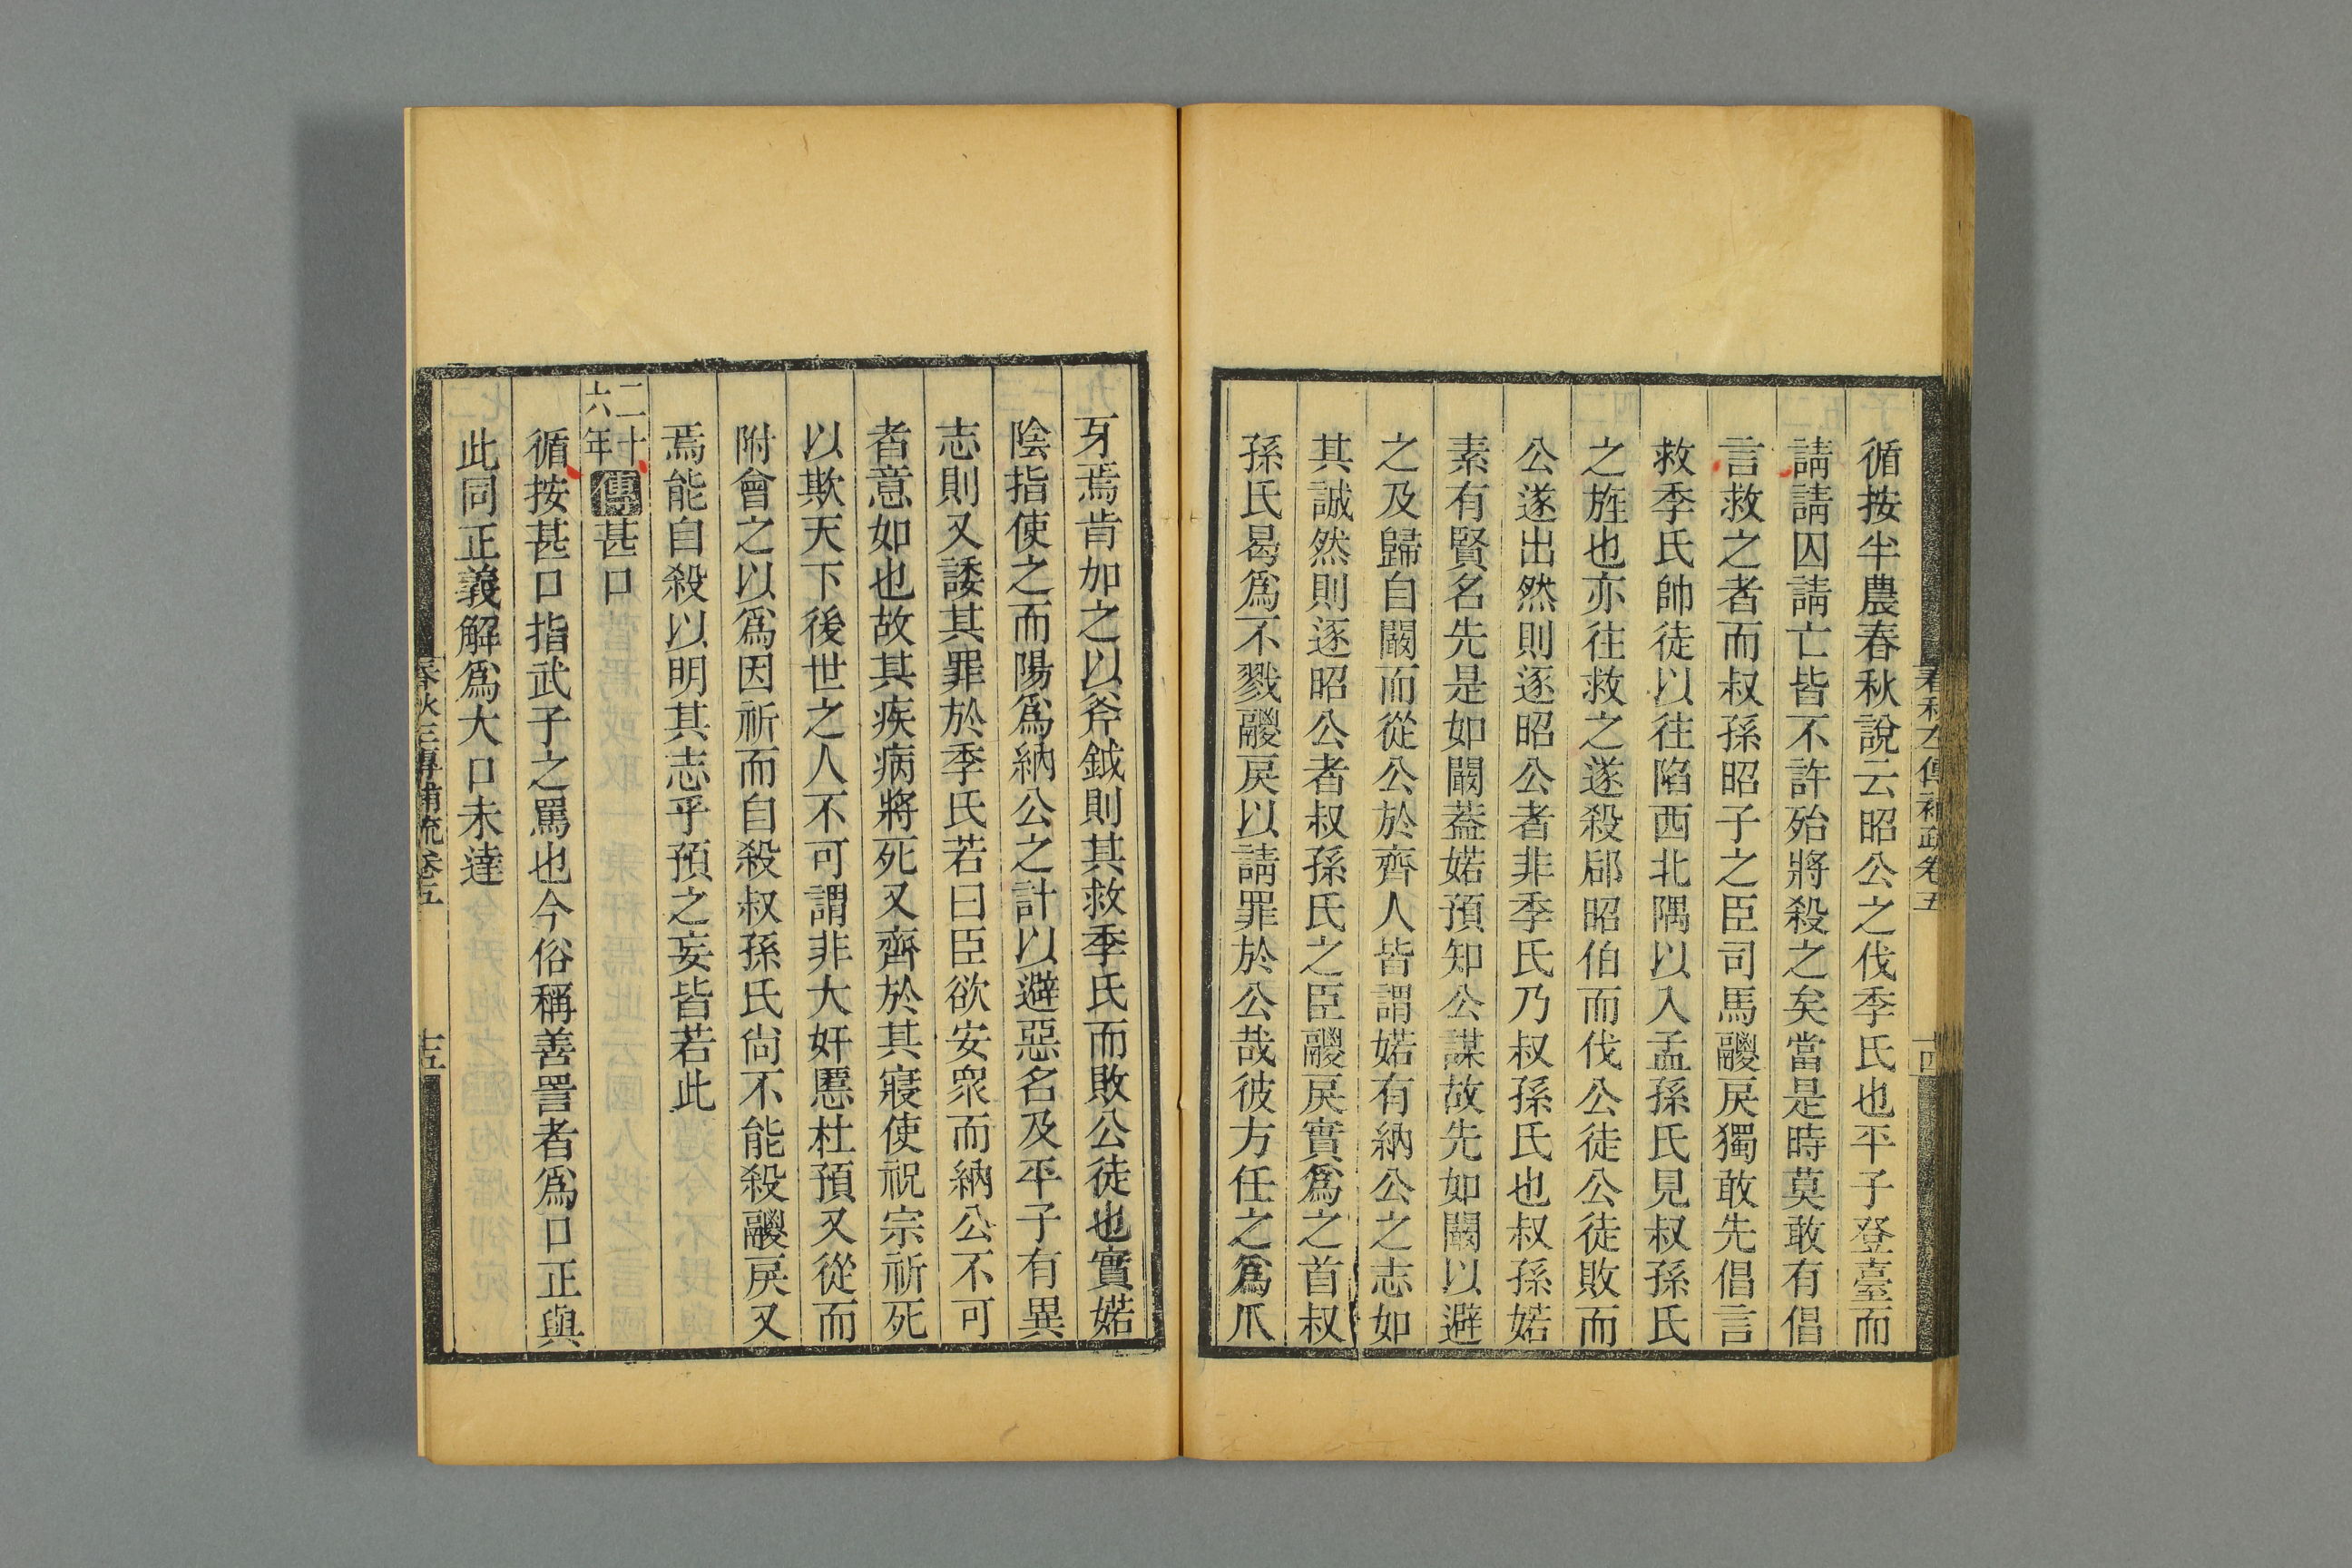 循按半農春秋說云昭公之伐季氏也平子登臺而
請請囚請亡皆不許殆將殺之矣當是時莫敢有倡
言救之者而叔孫昭子之臣司馬鬷戾獨敢先倡言
救季氏帥徒以往陷西北隅以入孟孫氏見叔孫氏
之旌也亦往救之遂殺郈昭伯而伐公徒公徒敗而
公遂出然則逐昭公者非季氏乃叔孫氏也叔孫婼
素有賢名先是如闞蓋婼預知公謀故先如闞以避
之及歸自闞而從公於齊人皆謂婼有納公之志如
其誠然則逐昭公者叔孫氏之臣鬷戾實爲之首叔
孫氏曷爲不戮鬷戾以請罪於公哉彼方任之爲爪
春秋左傳補疏卷五
十四
牙焉肯加之以斧鉞則其救季氏而敗公徒也實婼
陰指使之而陽爲納公之計以避惡名及平子有異
志則又諉其罪於季氏若曰臣欲安衆而納公不可
者意如也故其疾病將死又齊於其寢使祝宗祈死
以欺天下後世之人不可謂非大奸慝杜預又從而
附會之以爲因祈而自殺叔孫氏尙不能殺鬷戾又
焉能自殺以明其志乎預之妄皆若此
二十六年傳甚口
循按甚口指武子之罵也今俗稱善詈者爲口正與
此同正義解爲大口未達
春秋左傳補疏卷五
十五